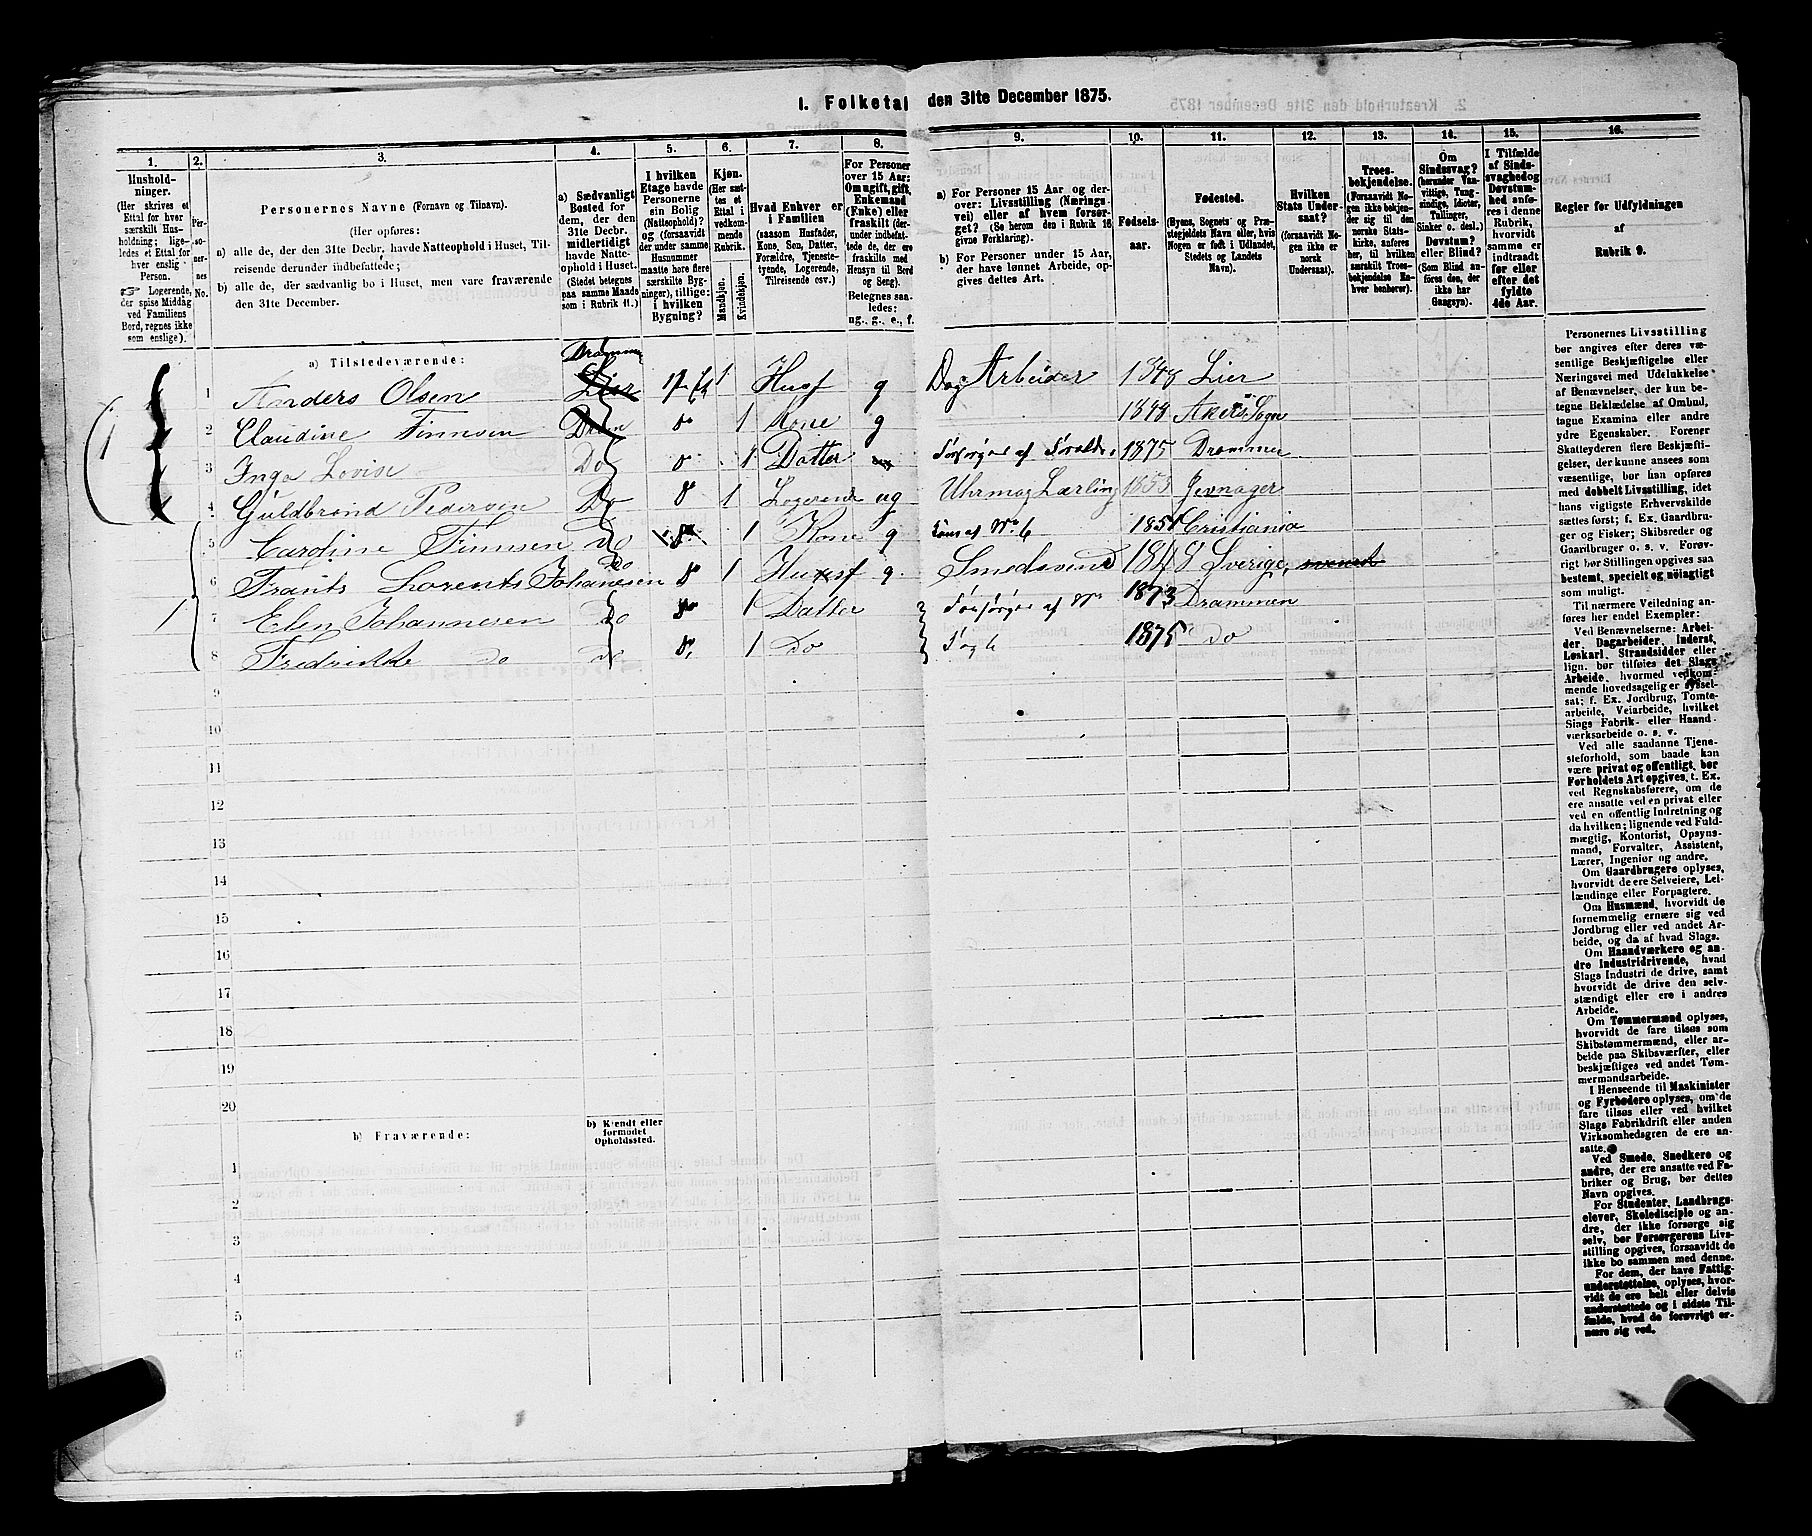 1. Folketal den 31te December 1875.
1.
Husholdninger.
(Her skrives et
Ettal for hver
særskilt Husholdning;
ligeledes et Ettal for
hver enslig
Person.
☞ Logerende,
der spise Middag
ved Familiens
Bord, regnes ikke
som enslige).
2.
Personernes
No.
3.
Personernes Navne (Fornavn og Tilnavn).
(Her opføres:
a) alle de, der den 31te Decbr. havde Natteophold i Huset, Tilreisende derunder indbefattede;
b) alle de, der sædvanlig bo i Huset, men vare fraværende
den 31te December.
4.
a) Sædvanligt
Bosted for
dem, der den
31te Decbr.
midlertidigt
havde Natteophold i Huset.
(Stedet betegnes
paa samme Maade
som i Rubrik 11.)
5.
I hvilken
Etage havde
Personerne
sin Bolig
(Natteophold)?
og (forsaavidt
der under samme
Husnummer
maatte høre flere
særskilte Bygninger), tillige:
i hvilken
Bygning?
6.
Kjøn.
(Her sættes et
Ettal i
vedkommende
Rubrik.
Mandkjøn.
Kvindekjøn.
7.
Hvad Enhver er
i Familien
(saasom Husfader,
Kone, Søn, Datter,
Forældre, Tjenestetyende, Logerende,
Tilreisende osv.)
8.
For Personer
over 15 Aar:
Om ugift, gift,
Enkemand
(Enke) eller
fraskilt (derunder indbefattede de, der ere
fraskilte med
Hensyn til Bord
og Seng).
Betegnes saaledes:
ug., g., e., f.
9.
a) For Personer 15 Aar og derover: Livsstilling (Næringsvei) eller af hvem forsørget? (Se herom den i Rubrik 16
givne Forklaring).
b) For Personer under 15 Aar,
der have lønnet Arbeide, opgives dettes Art.
10.
Fødselsaar.
11.
Fødested.
(Byens, Sognets eller Præstegjeldets Navn eller, hvis
Nogen er født i Udlandet,
Stedets og Landets
Navn).
12.
Hvilken
Stats Undersaat?
(forsaavidt Nogen ikke er
norsk
Undersaat).
13.
Troesbekjendelse.
(Forsaavidt Nogen ikke bekjender sig til den
norske Statskirke, anføres
her, til hvilken
særskilt Troesbekjendelse Enhver henhører).
14.
Om
Sindssvag?
(herunder Vanvittige, Tungsindige, Idioter,
Tullinger,
Sinker o. desl.)
Døvstum?
eller Blind?
(Som Blind anføres den, der
ikke har
Gangsyn).
15.
I Tilfælde
af Sindssvaghed og
Døvstumhed anføres i denne
Rubrik,
hvorvidt
samme er
indtraadt
før eller
efter det
fyldte
4de Aar.
16.
Regler for Udfyldningen
af
Rubrik 9.
a) Tilstedeværende:
Drammen
1 Anders Olsen Lier 1 Husf g Dag Arbeider 1848 Lier
2 Claudine Finnsen Dmn do 1 Kone g 1848 Akers Sogn
3 Inga Lovise Do do 1 Datter Forsørges af Forældre 1875 Drammen
4 Guldbrand Pedersen Do do 1 Logerende ug Uhrmag Lærling 1853 Jevnager
5 Caroline Finnsen Do do 1 Kone g Kone af No 6 1851 Cristiania
6 Frants Lorents Johanesen Do do 1 Husf g Smedsvend 1848 Sverige, svensk
1 7 Elen Johannesen Do do 1 Datter Forsørges af No 1873 Drammen
8 Fredrikke do Do do 1 Do 1875 Do
9
10
11
12
13
14
15
16
17
18
19
20
b) Fraværende:
b) Kjendt eller
formodet
Opholdssted.
1
2
3
4
5
6
Personernes Livsstilling
bør angives efter deres væsentlige Beskjæftigelse eller
Næringsvei med Udelukkelse
af Benævnelser, der kun betegne Beklædelse af Ombud,
tagne Examina eller andre
ydre Egenskaber. Forener
Skatteyderen flere Beskjæftigelser, der kunne ansees som
væsentlige, bør han opføres
med dobbelt Livsstilling, idet
hans vigtigste Erhvervskilde
sættes først; f. Ex. Gaardbruger og Fisker; Skibsreder og
Gaardbruger o. s. v. Forøvrigt bør Stillingen opgives saa
bestemt, specielt og nøiagtigt
som muligt.
Til nærmere Veiledning anføres her endel Exempler:
Ved Benævnelserne: Arbeider, Dagarbeider, Inderst,
Løskarl, Strandsidder eller
lign. bør tilføies det Slags
Arbeide, hvormed vedkommende hovedsagelig er sysselsat; f. Ex. Jordbrug, Tomtearbeide, Veiarbeide, hvilket
Slags Fabrik- eller Haandværksarbeide o. s. v.
Ved alle saadanne Tjenesteforhold, som baade kan
være privat og offentligt, bør
Forholdets Art opgives, t. Ex.
ved Regnskabsførere, om de
ere ansatte ved en privat eller
ved en offentlig Indretning og
da hvilken; lignende ved Fuldmægtig, Kontorist, Opsynsmand, Forvalter, Assistent,
Lærer, Ingeniør og andre.
Om Gaardbrugere oplyses,
hvorvidt de ere Selveiere, Leilændinge eller Forpagtere.
Om Husmænd, hvorvidt de
fornemmelig ernære sig ved
Jordbrug eller ved andet Arbeide, og da af hvad Slags.
Om Haandværkere og andre Industridrivende, hvad
Slags Industri de drive, samt
hvorvidt de drive den selvstændigt eller ere i andres
Arbeide.
Om Tømmermænd oplyses,
hvorvidt de fare tilsøs som
Skibstømmermænd, eller arbeide paa Skibsværfter, eller
beskjæftiges ved andet Tømmermandsarbeide.
I Henseende til Maskinister
og Fyrbødere oplyses, om de
fare tilsøs eller ved hvilket
Slags Fabrikdrift eller anden
Virksomhedsgren de ere ansatte.
Ved Smede, Snedkere og
andre, der ere ansatte ved Fabriker og Brug, bør dettes
Navn opgives.
For Studenter, Landbrugselever, Skoledisciple og andre, der ikke forsørge sig
selv, bør Forsørgerens Livsstilling opgives, forsaavidt de
ikke bo sammen med denne.
For dem, der have Fattigunderstøttelse, oplyses, hvorvidt de ere helt eller delvis
understøttede og i sidste Tilfælde, hvad de forøvrigt ernære sig ved.